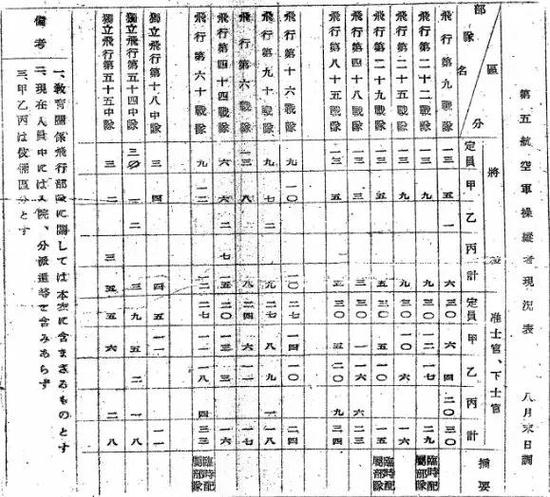 第五航空軍操縱者現況表 八月末日調
部隊名 區分 將校 定員 甲 乙 丙 計 准士官、下士官 定員 甲 乙 丙 計 摘要
飛行第九戰隊 一三 五 一 六 三〇 六 四 二〇 三〇
飛行第二十二戰隊 一三 九 九 三〇 一二 一七 二九 臨時配屬部隊
飛行第二十五戰隊 一三 九 九 三〇 一〇 六 一六
飛行第二十九戰隊 一三 五 五 三〇 五 一〇 一五 臨時配屬部隊
飛行第八十五戰隊 一三 五 五 三〇 五 二〇 九 三四
飛行第十六戰隊 九 一〇 一〇 二七 一四 一〇 二四
飛行第九十戰隊 九 七 二 九 二七 八 九 一 一八
飛行第六戰隊 一三 八 八 二四 六 一一 一七
飛行第四十四戰隊 六 六 二 七 一五 二〇 一三 三 一六
飛行第六十戰隊 九 一二 一二 二七 一一 一八 四 三三 臨時配屬部隊
獨立飛行第十八中隊 三 四 四 五 一一 一一
獨立飛行第五十四中隊 三 一 二 三 五 九 二 一
獨立飛行第五十五中隊 三 二 三 五 五 六 二 八
備考
一、教育關係飛行部隊に關しては本表に含まざるものとす
二、現在人員中には入院、分派遣等を含みあらず
三、甲乙丙は伎倆區分とす